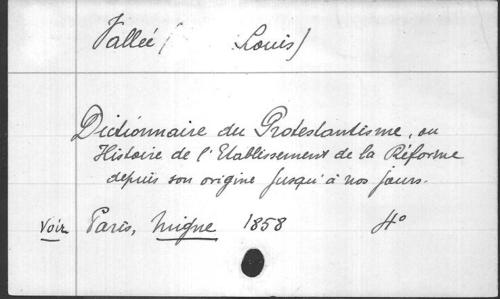 Vallée ( Louis)
Dictionnaire du Protestantisme, ou
Histoire de l'Etablissement de la Réforme
depuis son origine jusqu'à nos jours.
Voir Paris, Migne 1858 4°